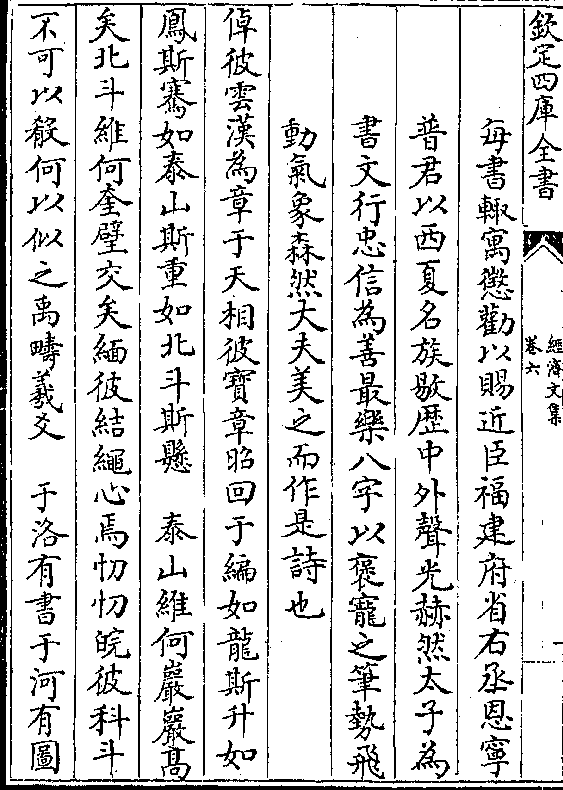 欽定四庫全書
經濟文集
卷六
每書輙寓懲勸以賜近臣福建府省右丞恩寧
普君以西夏名族敭歴中外聲光赫然太子為
書文行忠信為善最樂八字以褒寵之筆勢飛
動氣象森然大夫美之而作是詩也
倬彼雲漢為章于天相彼寶章昭回于編如龍斯升如
鳳斯騫如泰山斯重如北斗斯懸　泰山維何巖巖髙
矣北斗維何奎璧交矣緬彼結繩心焉忉忉皖彼科斗
不可以殽何以似之禹疇羲爻　于洛有書于河有圖